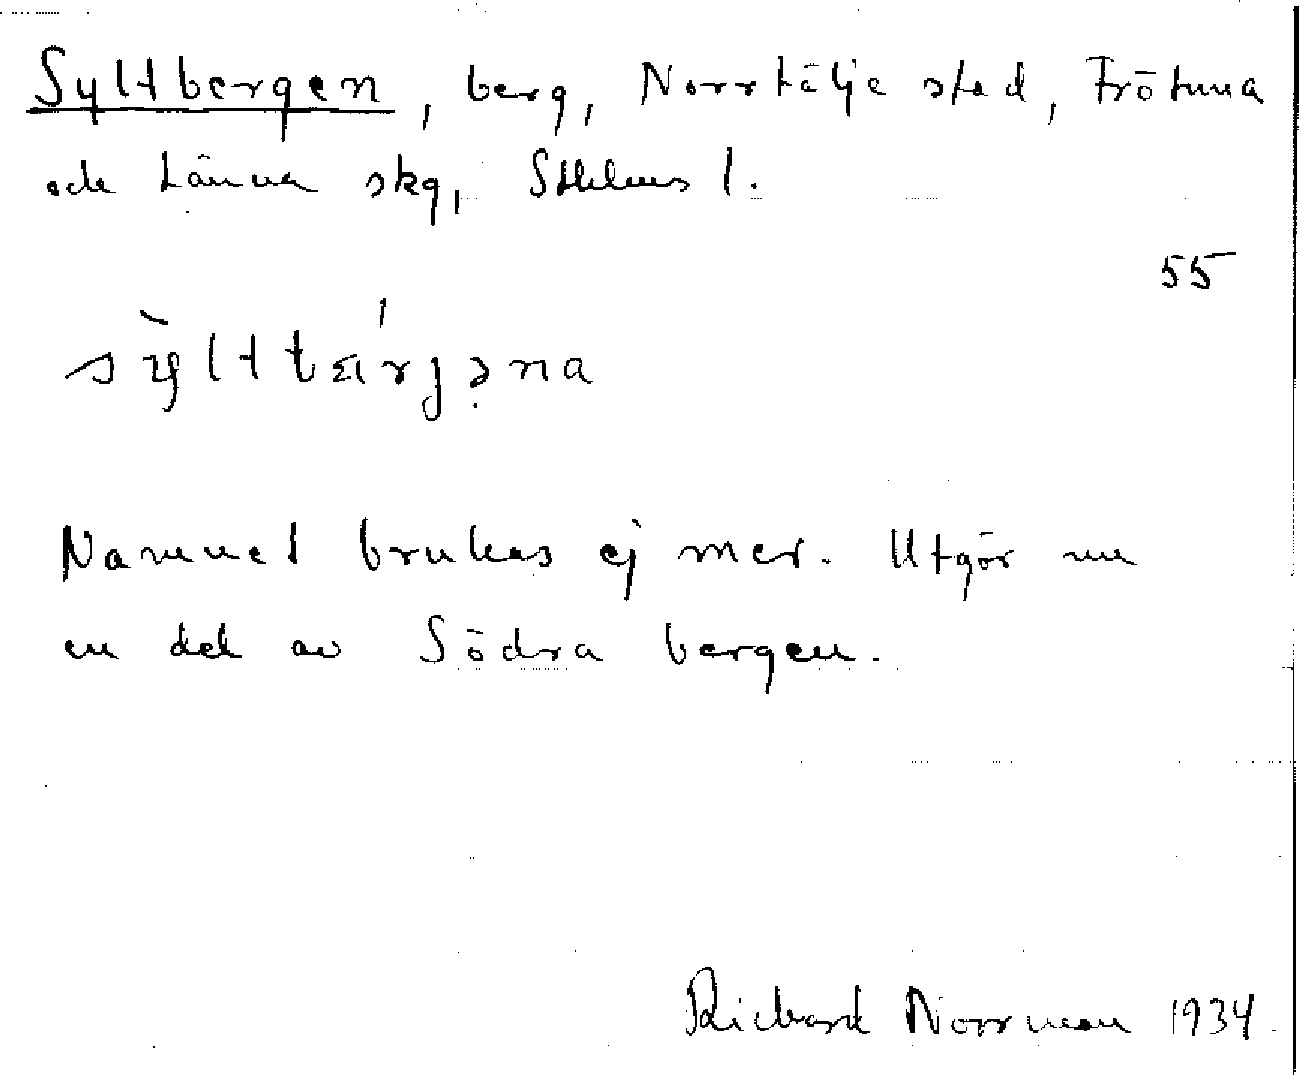 Syltbergen, berg, Norrtälje stad, Frötuna
och Länna skg, Sthlms l.
55
sỳltbærjəna
Namnet brukas ej mer. Utgör nu
en del av Södra bergen.
Richard Norrman 1934